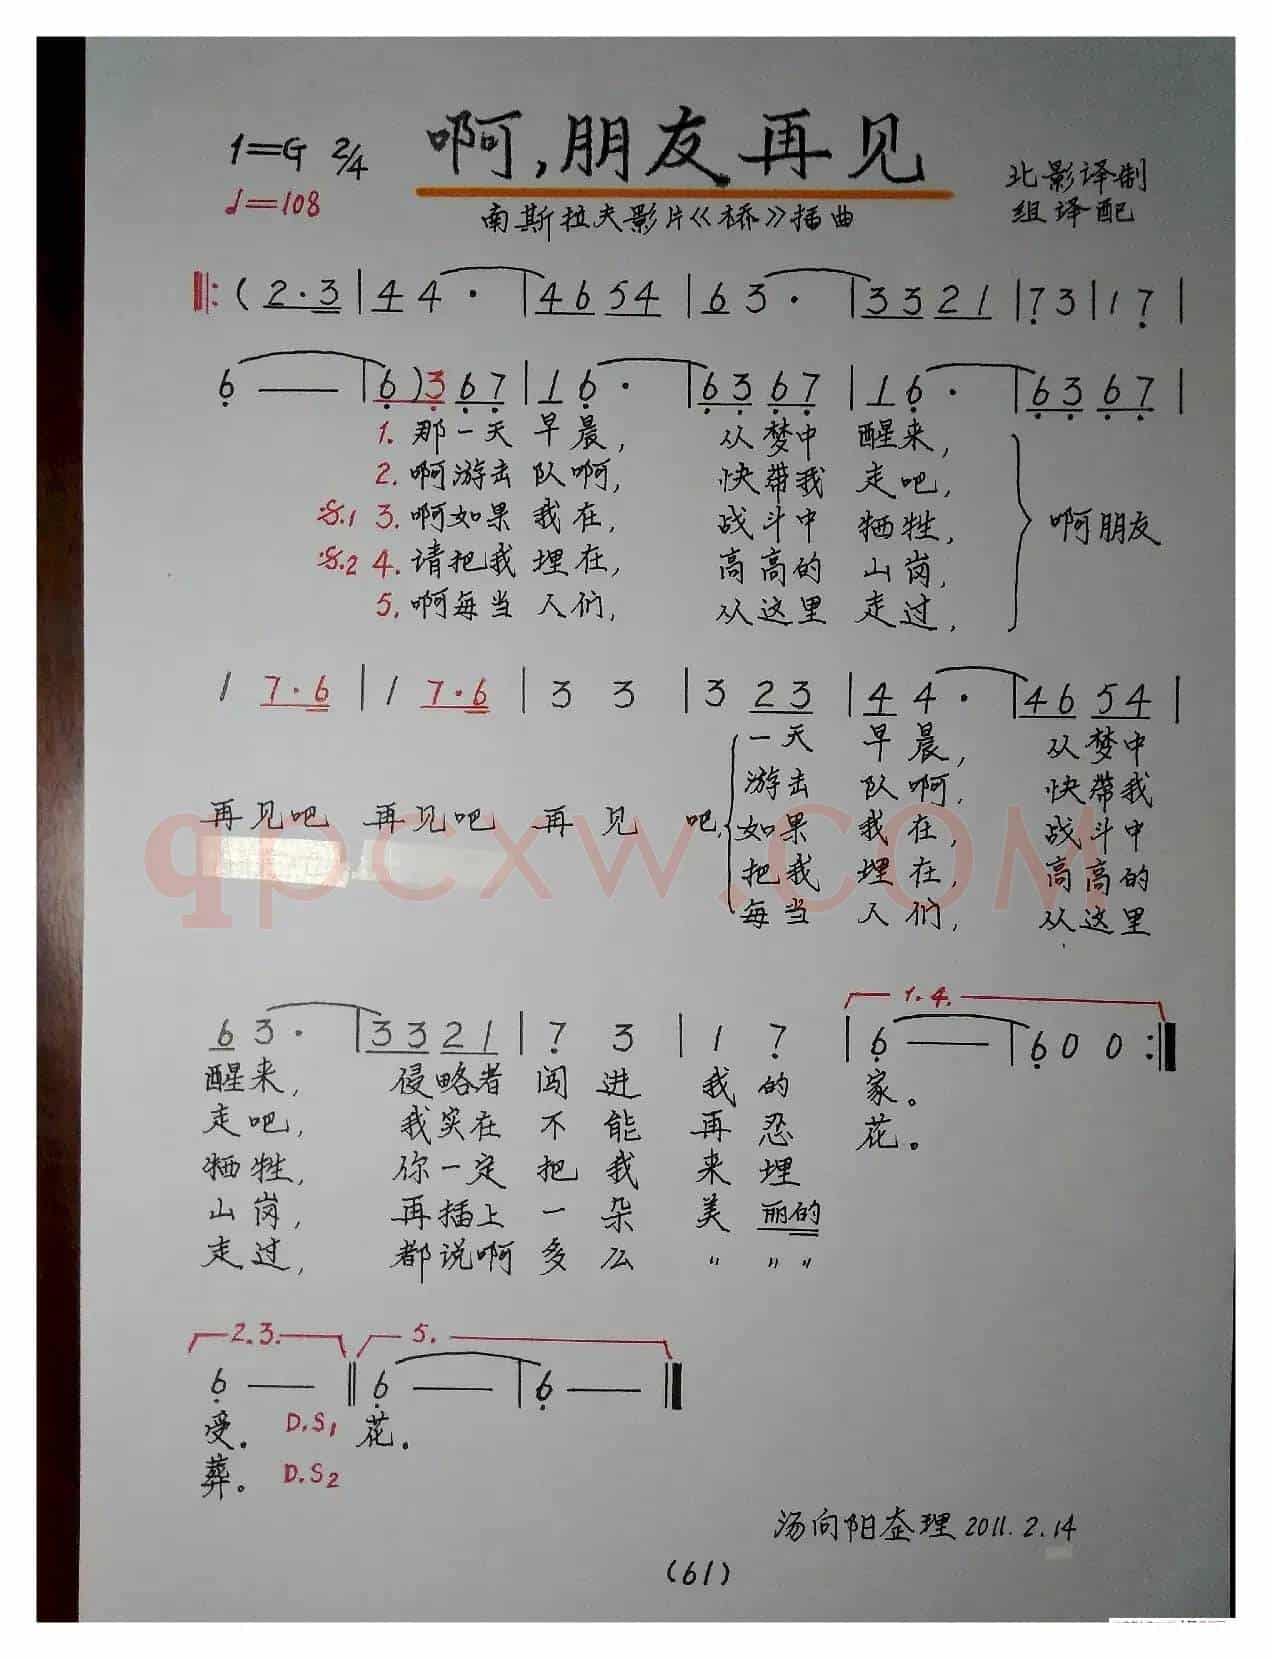 1=G 2/4 啊,朋友再见
♩=108
南斯拉夫影片《桥》插曲
北影译制
组译配
‖: ( 2·3 | 4 4 · | 4 6 5 4 | 6 3 · | 3 3 2 1 | 7 3 | 1 7 |
6 — | 6 ) 3 6 7 | 1 6 · | 6 3 6 7 | 1 6 · | 6 3 6 7 |
1. 那一天 早晨, 从梦中 醒来,
2. 啊游击 队啊, 快带我 走吧,
𝄋.1 3. 啊如果 我在, 战斗中 牺牲, 啊朋友
𝄋.2 4. 请把我 埋在, 高高的 山岗,
5. 啊每当 人们, 从这里 走过,
1 7·6 | 1 7·6 | 3 3 | 3 2 3 | 4 4 · | 4 6 5 4 |
一天 早晨, 从梦中
游击 队啊, 快带我
再见吧 再见吧 再见 吧, 如果 我在, 战斗中
把我 埋在, 高高的
每当 人们, 从这里
qpcxw.COM
1.4.
6 3 · | 3 3 2 1 | 7 3 | 1 7 | 6 — | 6 0 0 :‖
醒来, 侵略者 闯进 我的 家。
走吧, 我实在 不能 再忍 花。
牺牲, 你一定 把我 来埋
山岗, 再插上 一朵 美丽的
走过, 都说啊 多么 〃 〃〃
2.3. 5.
6 — ‖ 6 — | 6 — ‖
受。 D.S1 花。
葬。 D.S2
汤向阳整理 2011.2.14
(61)